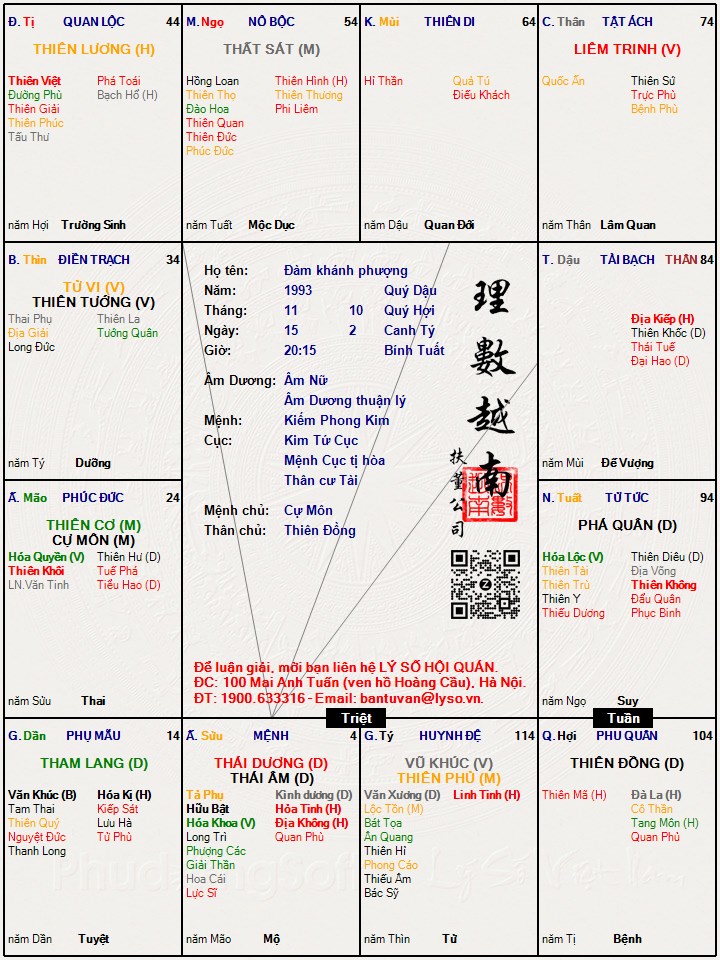 Đ. Tị QUAN LỘC 44
THIÊN LƯƠNG (H)
Thiên Việt Phá Toái
Đường Phù Bạch Hổ (H)
Thiên Giải
Thiên Phúc
Tấu Thư
năm Hợi Trường Sinh
M. Ngọ NÔ BỘC 54
THẤT SÁT (M)
Hồng Loan Thiên Hình (H)
Thiên Thọ Thiên Thương
Đào Hoa Phi Liêm
Thiên Quan
Thiên Đức
Phúc Đức
năm Tuất Mộc Dục
K. Mùi THIÊN DI 64
Hỉ Thần Quả Tú
Điếu Khách
năm Dậu Quan Đới
C. Thân TẬT ÁCH 74
LIÊM TRINH (V)
Quốc Ấn Thiên Sứ
Trực Phù
Bệnh Phù
năm Thân Lâm Quan
B. Thìn ĐIỀN TRẠCH 34
TỬ VI (V)
THIÊN TƯỚNG (V)
Thai Phụ Thiên La
Địa Giải Tướng Quân
Long Đức
năm Tý Dưỡng
Họ tên: Đàm khánh phượng
Năm: 1993 Quý Dậu
Tháng: 11 10 Quý Hợi
Ngày: 15 2 Canh Tý
Giờ: 20:15 Bính Tuất
Âm Dương: Âm Nữ
Âm Dương thuận lý
Mệnh: Kiếm Phong Kim
Cục: Kim Tứ Cục
Mệnh Cục tị hòa
Thân cư Tài
Mệnh chủ: Cự Môn
Thân chủ: Thiên Đồng
理數越南
扶董公司
Để luận giải, mời bạn liên hệ LÝ SỐ HỘI QUÁN.
ĐC: 100 Mai Anh Tuấn (ven hồ Hoàng Cầu), Hà Nội.
ĐT: 1900.633316 - Email: bantuvan@lyso.vn.
T. Dậu TÀI BẠCH THÂN 84
Địa Kiếp (H)
Thiên Khốc (D)
Thái Tuế
Đại Hao (D)
năm Mùi Đế Vượng
Ấ. Mão PHÚC ĐỨC 24
THIÊN CƠ (M)
CỰ MÔN (M)
Hóa Quyền (V) Thiên Hư (D)
Thiên Khôi Tuế Phá
LN.Văn Tinh Tiểu Hao (D)
năm Sửu Thai
N. Tuất TỬ TỨC 94
PHÁ QUÂN (D)
Hóa Lộc (V) Thiên Diêu (D)
Thiên Tài Địa Võng
Thiên Trù Thiên Không
Thiên Y Đẩu Quân
Thiếu Dương Phục Binh
năm Ngọ Suy
Triệt
Tuần
G. Dần PHỤ MẪU 14
THAM LANG (D)
Văn Khúc (B) Hóa Kị (H)
Tam Thai Kiếp Sát
Thiên Quý Lưu Hà
Nguyệt Đức Tử Phù
Thanh Long
năm Dần Tuyệt
Ấ. Sửu MỆNH 4
THÁI DƯƠNG (D)
THÁI ÂM (D)
Tả Phụ Kình dương (D)
Hữu Bật Hỏa Tinh (H)
Hóa Khoa (V) Địa Không (H)
Long Trì Quan Phù
Phượng Các
Giải Thần
Hoa Cái
Lực Sĩ
năm Mão Mộ
G. Tý HUYNH ĐỆ 114
VŨ KHÚC (V)
THIÊN PHỦ (M)
Văn Xương (D) Linh Tinh (H)
Lộc Tồn (M)
Bát Tọa
Ân Quang
Thiên Hỉ
Phong Cáo
Thiếu Âm
Bác Sỹ
năm Thìn Tử
Q. Hợi PHU QUÂN 104
THIÊN ĐỒNG (D)
Thiên Mã (H) Đà La (H)
Cô Thần
Tang Môn (H)
Quan Phủ
năm Tị Bệnh